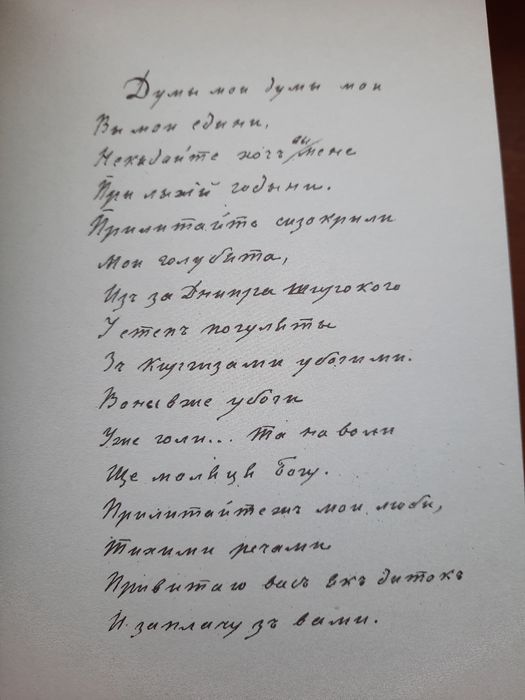 Думы мои думы мои
Вы мои едыни,
Некыдайте хочъ вы мене
При лыхій годыни.
Прилитайте сизокрили
Мои голубята,
Изъ за Днипра широкого
У степъ погуляты
Зъ Киргизами убогими.
Воны вже убоги
Уже голи... Та на воли
Ще моляця Богу.
Прилитайтежъ мои люби,
Тихими речами
Привитаю васъ якъ дитокъ
И заплачу зъ вами.